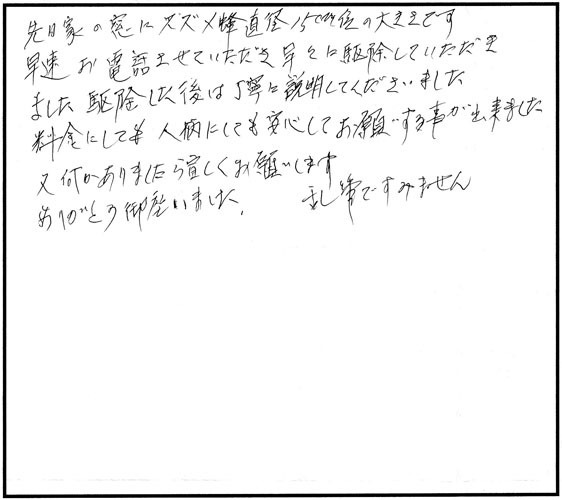 先日家の窓にスズメ蜂直径15cm位の大きさです
早速お電話させていただき早々に駆除していただき
ました駆除した後は丁寧に説明してくださいました
料金にしても人柄にしても安心してお願いする事が出来ました
又何かありましたら宜しくお願いします
ありがとう御座いました。 乱筆ですみません